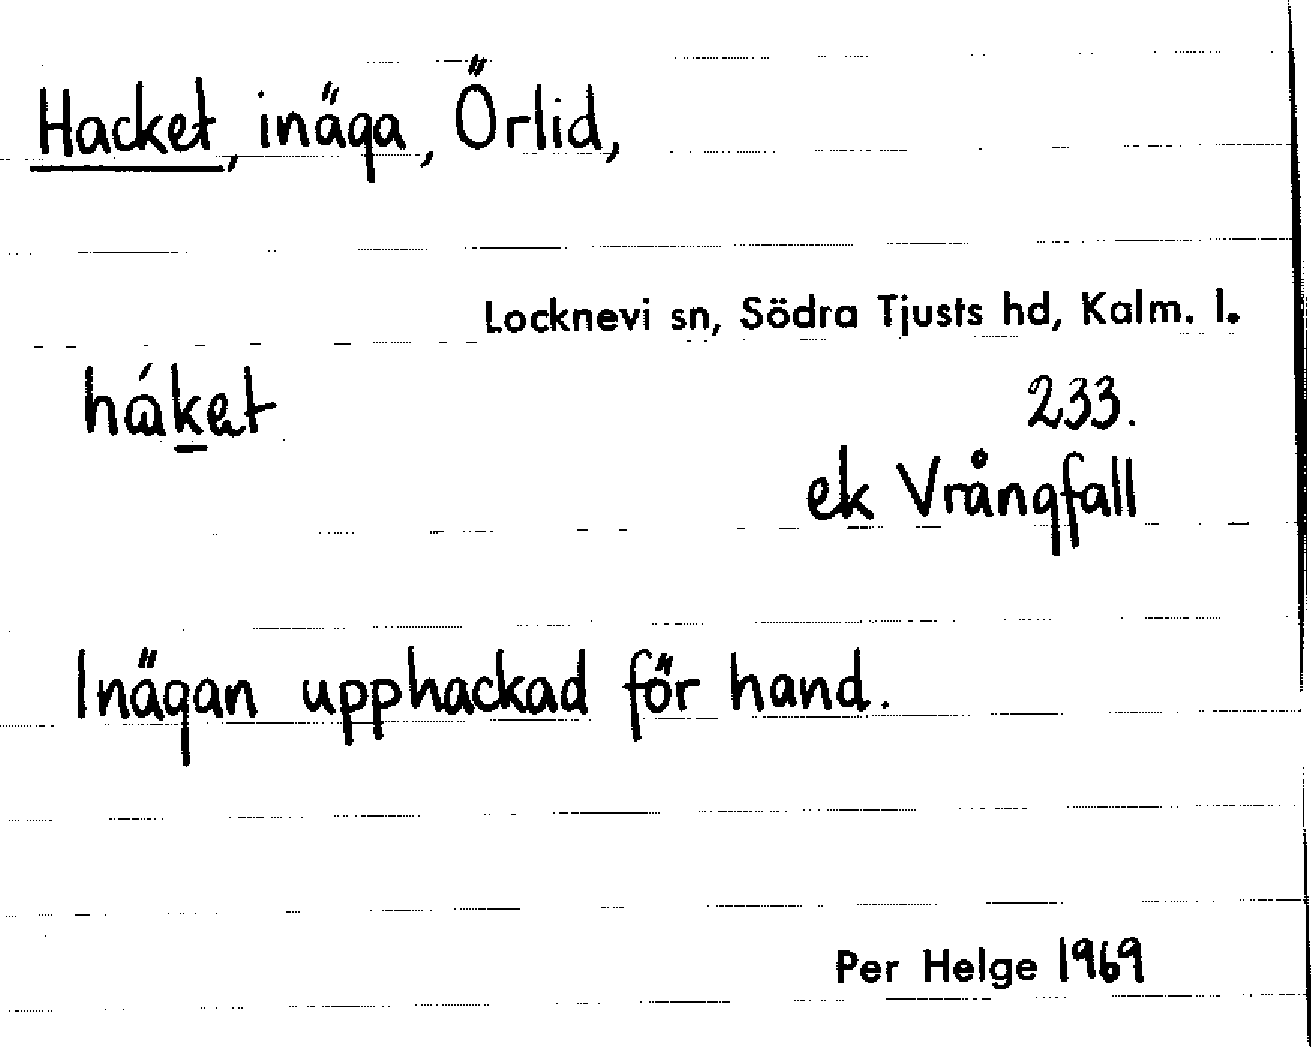 Hacket, inäga, Örlid,
Locknevi sn, Södra Tjusts hd, Kalm. l.
háket
233.
ek Vrångfall
Inägan upphackad för hand.
Per Helge 1969